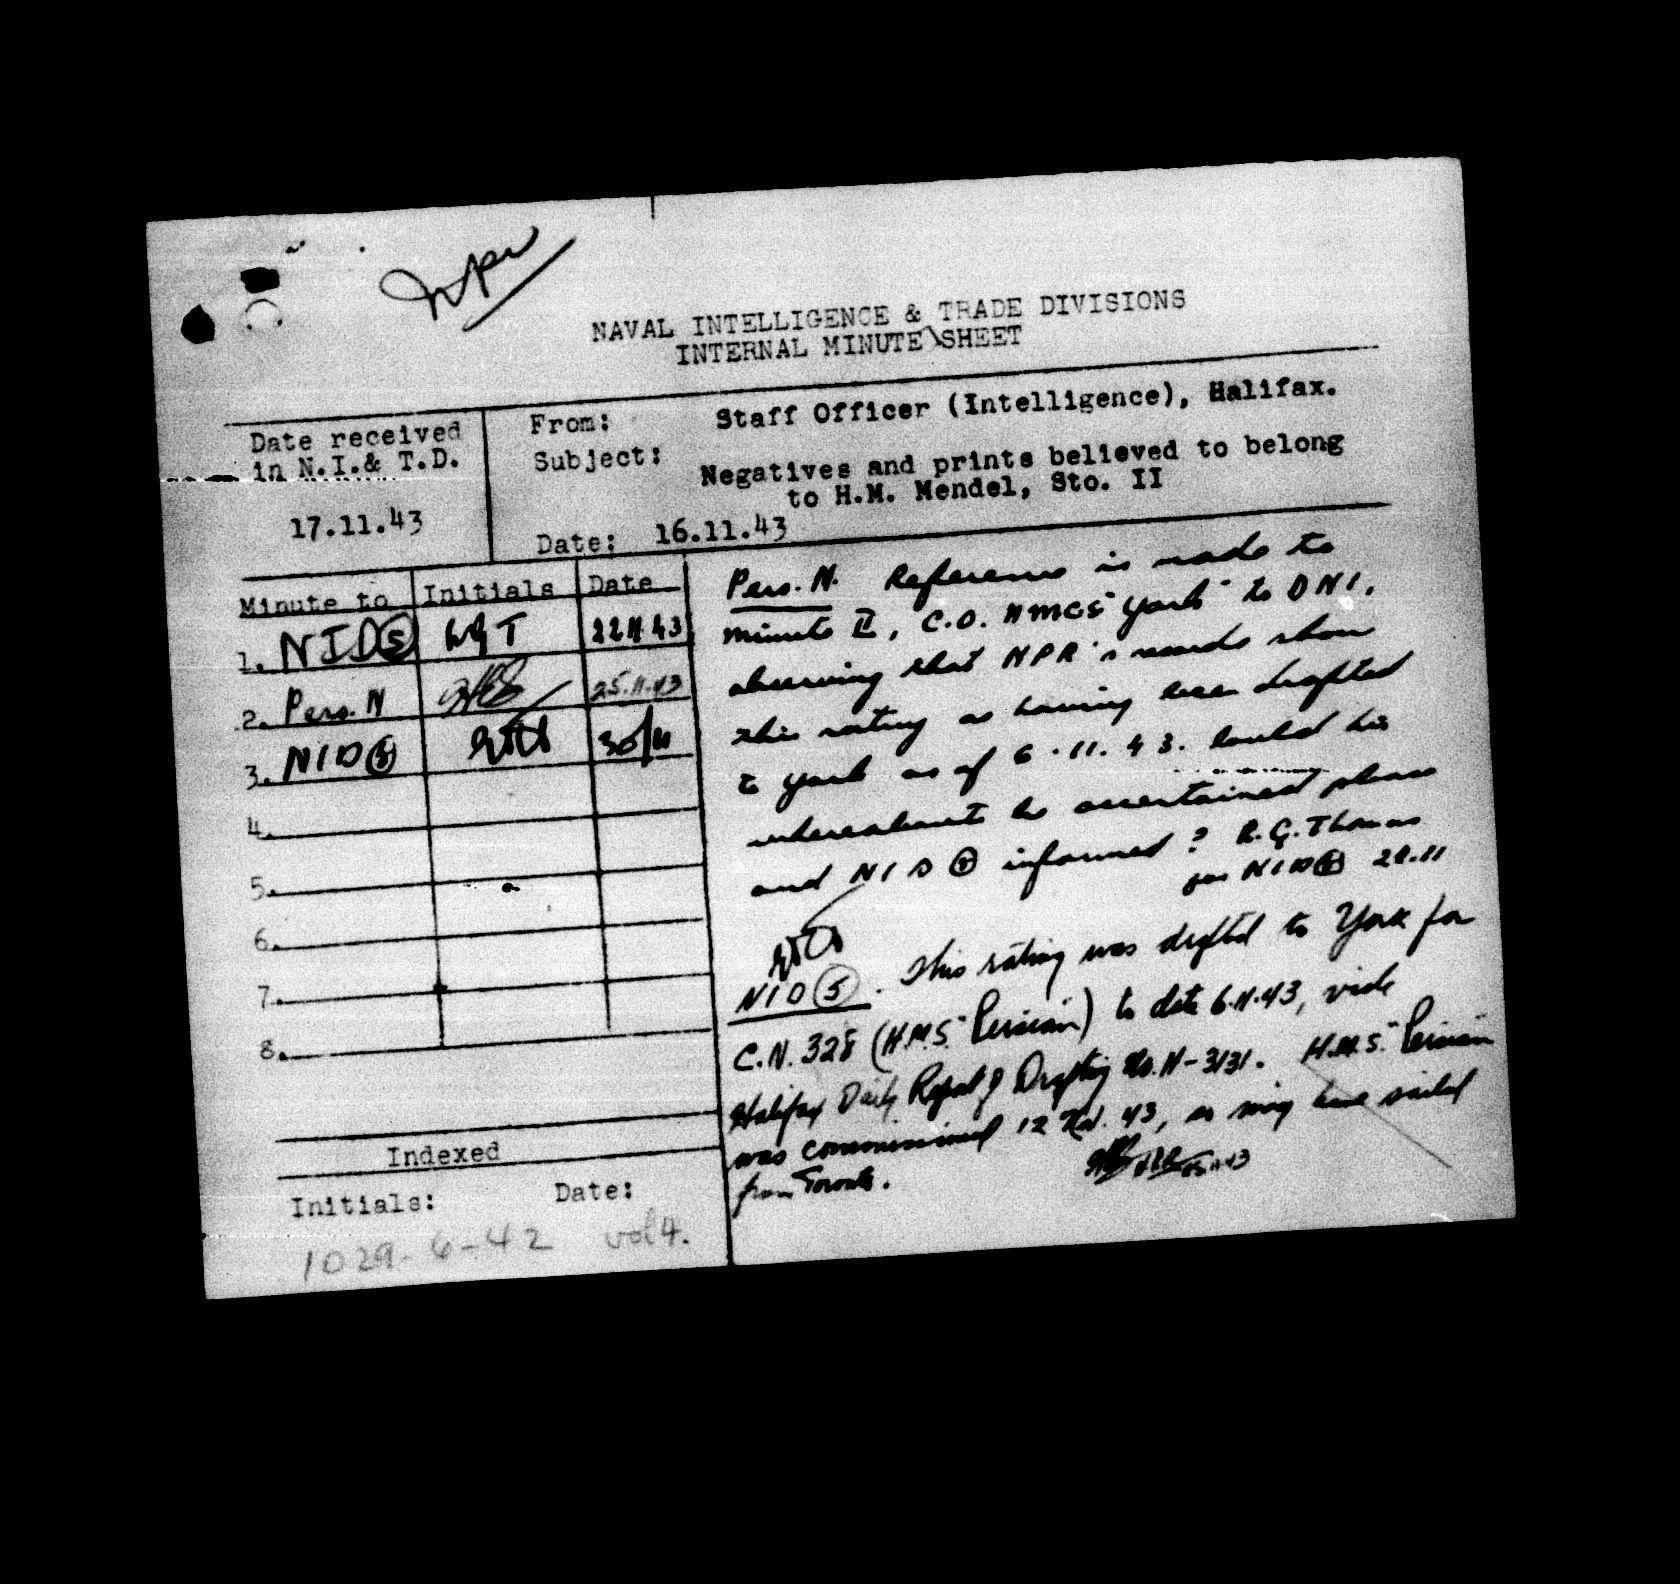 NAVAL INTELLIGENCE & TRADE DIVISIONS
INTERNAL MINUTE SHEET
Date received
in N.I.& T.D.
17.11.43
From: Staff Officer (Intelligence), Halifax.
Subject: Negatives and prints believed to belong
to H.M. Mendel, Sto. II
Date: 16.11.43
Minute to Initials Date
1. NID 5 22 11 43
2. Pers. N 25.11.43
3. NID 30/11
4.
5.
6.
7.
8.
Indexed
Initials: Date:
1029-6-42 vol 4.
Pers. N. Reference is made to
minute II, C.O. HMCS "York" to DNI,
observing that NPR's records show
this rating as having been drafted
to York as of 6.11.43. Could his
whereabouts be ascertained please
and NID informed? R.G. Thomas
for NID 22.11
NID 5. This rating was drafted to York for
C.N. 328 (H.M.S. "Persian") to date 6.11.43, vide
Halifax Daily Report of Drafting No. H-3131. H.M.S. "Persian
was commissioned 12 Nov. 43, & may have sailed
from Toronto.